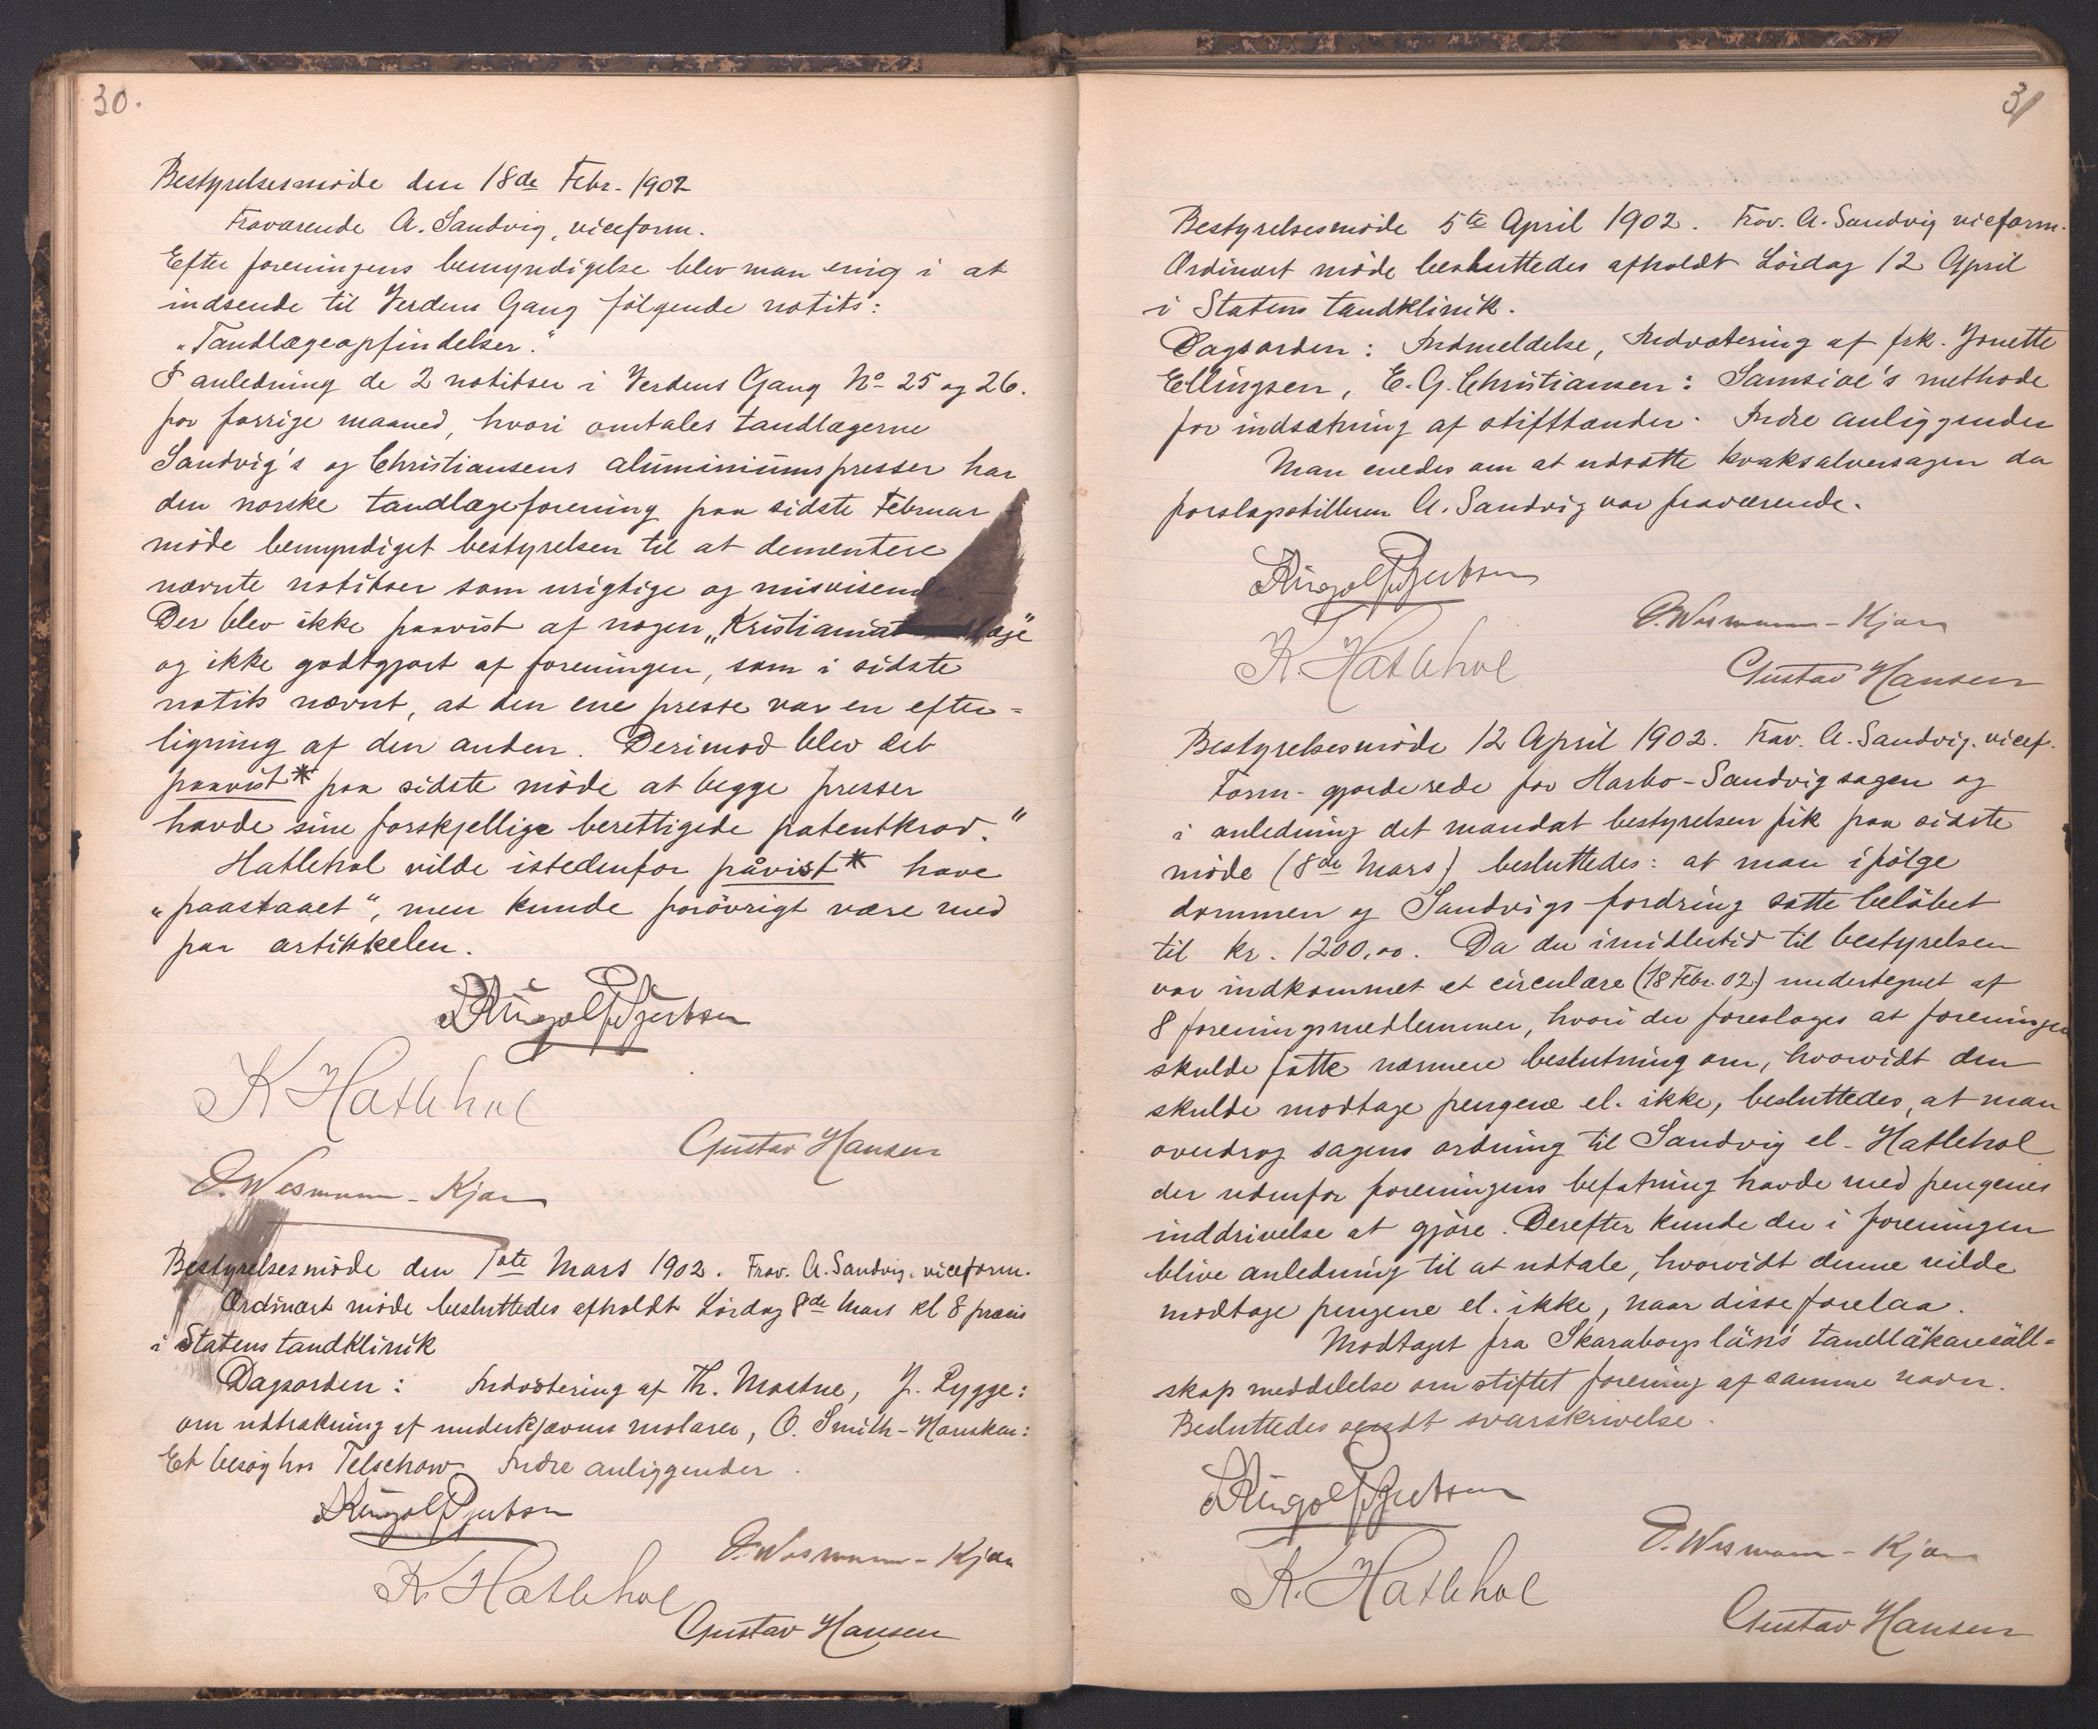 30.
Bestyrelsesmöde den 18de Febr. 1902
Fraværende A. Sandvig, viceform.
Efter foreningens bemyndigelse blev man enig i at
indsende til Verdens Gang følgende notits:
„Tandlægeopfindelser."
I anledning de 2 notitser i Verdens Gang No 25 og 26.
for forrige maaned, hvori omtales tandlægerne
Sandvig's og Christiansens aluminiumspresser har
den norske tandlægeforening paa sidste Februar
möde bemyndiget bestyrelsen til at dementere
nævnte notitser som urigtige og misvisende.
Der blev ikke paavist af nogen „Kristianiatandlæge"
og ikke godtgjort af foreningen, som i sidste
notits nævnt, at den ene presse var en efter=
ligning af den anden. Derimod blev det
paavist* paa sidste möde at begge presser
havde sine forskjellige berettigede patentkrav."
Hatlehol vilde istedenfor påvist* have
„paastaaet", men kunde forövrigt være med
paa artikkelen.
K Hatlehol
Gustav Hansen
O. Wesmann-Kjær
Bestyrelsesmöde den 1ste Mars 1902. Frav. A. Sandvig, viceform.
Ordinært möde besluttedes afholdt Lördag 8de Mars kl 8 præcis
i Statens tandklinik
Dagsorden: Indvotering af Th. Mostue, J. Rygge:
om udtrækning af underkjævens molarer, O. Smith-Housken:
Et besög hos Telschow. Indre anliggender.
O. Wesmann-Kjær
K. Hatlehol
Gustav Hansen
31
Bestyrelsesmöde 5te April 1902. Frav. A. Sandvig viceform.
Ordinært möde besluttedes afholdt Lördag 12 April
i Statens tandklinik.
Dagsorden: Indmeldelse, Indvotering af frk. Jonette
Ellingsen, E. G. Christiansen: Samsioe's methode
for indsætning af stifttænder. Indre anliggender
Man enedes om at udsætte kvaksalversagen da
forslagsstilleren A. Sandvig var fraværende.
O. Wesmann-Kjær
K. Hatlehol
Gustav Hansen
Bestyrelsesmöde 12 April 1902. Frav. A. Sandvig. vicef.
Form. gjorde rede for Harbo-Sandvigsagen og
i anledning det mandat bestyrelsen fik paa sidste
möde (8de Mars) besluttedes: at man ifölge
dommen og Sandvigs fordring satte belöbet
til kr. 1200,00. Da der imidlertid til bestyrelsen
var indkommet et circulære (18 Febr. 02) undertegnet af
8 foreningsmedlemmer, hvori der foreslages at foreningen
skulde fatte nærmere beslutning om, hvorvidt den
skulde modtage pengene el. ikke, besluttedes, at man
overdrog sagens ordning til Sandvig el. Hatlehol
der udenfor foreningens befatning havde med pengenes
inddrivelse at gjöre. Derefter kunde der i foreningen
blive anledning til at udtale, hvorvidt denne vilde
modtage pengene el. ikke, naar disse forelaa.
Modtaget fra Skaraborgs läns tandläkaresäll=
skap meddelelse om stiftet forening af samme navn.
Besluttedes sendt svarskrivelse.
O. Wesmann-Kjær
K. Hatlehol
Gustav Hansen